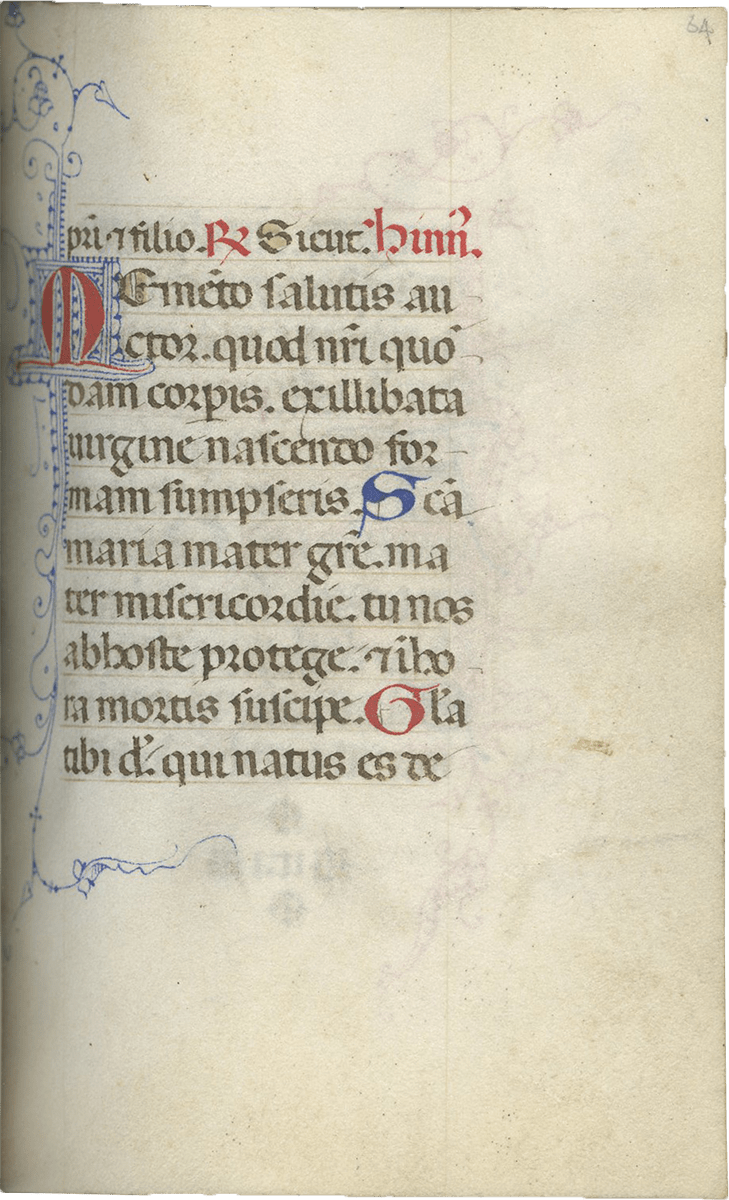 64
pr̄i ⁊ filio. ℟ Sicut. hinn̄.
MEmēto salutis au-
ctor. quod nr̄i quō-
dam corpis. exillibata
uirgine nascendo for-
mam sumpseris. Scā
maria mater grē. ma
ter misericordie. tu nos
abhoste protege. ⁊ iħo-
ra mortis suscipe. Gl̄a
tibi dē. qui natus es de